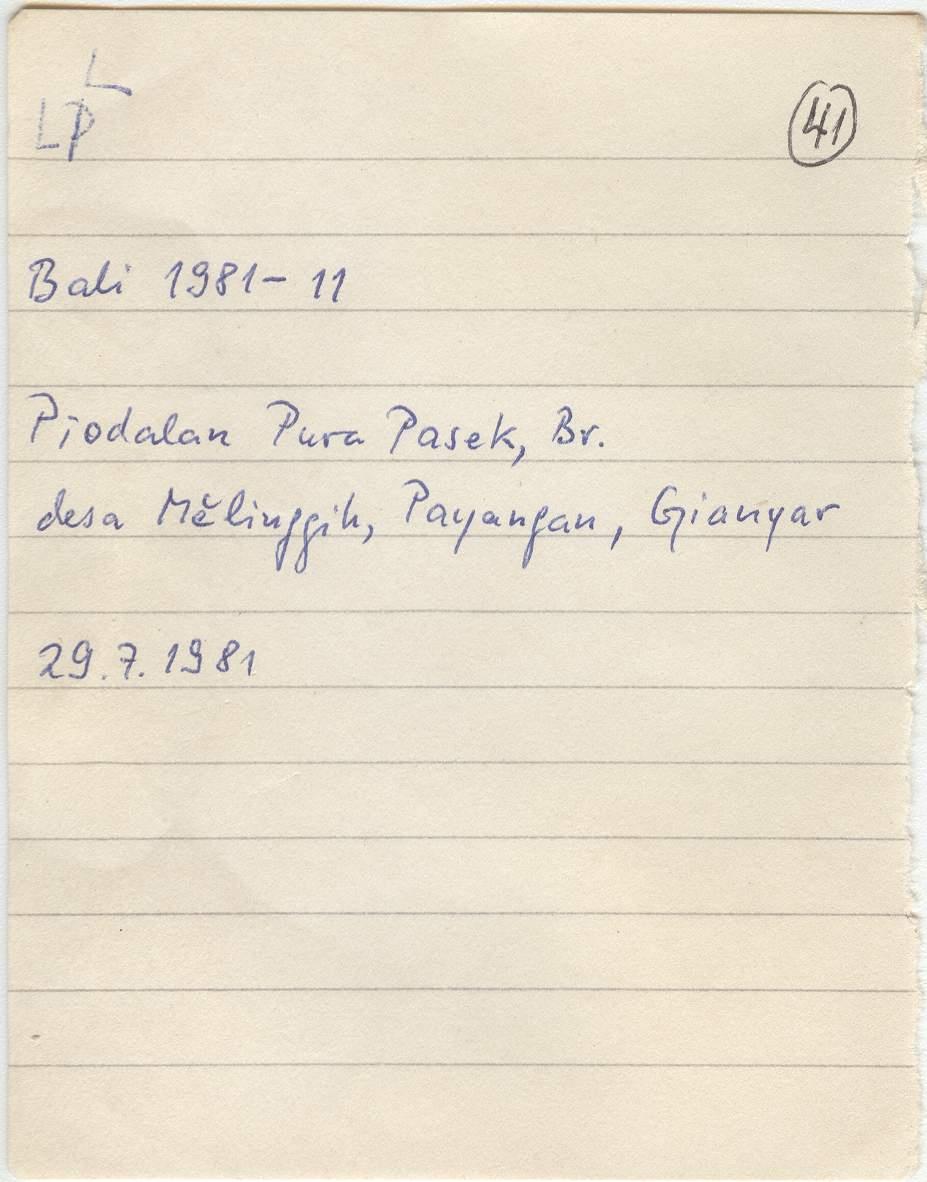 L
LP
41
Bali 1981-11
Piodalan Pura Pasek, Br.
desa Mĕlinggih, Payangan, Gianyar
29.7.1981